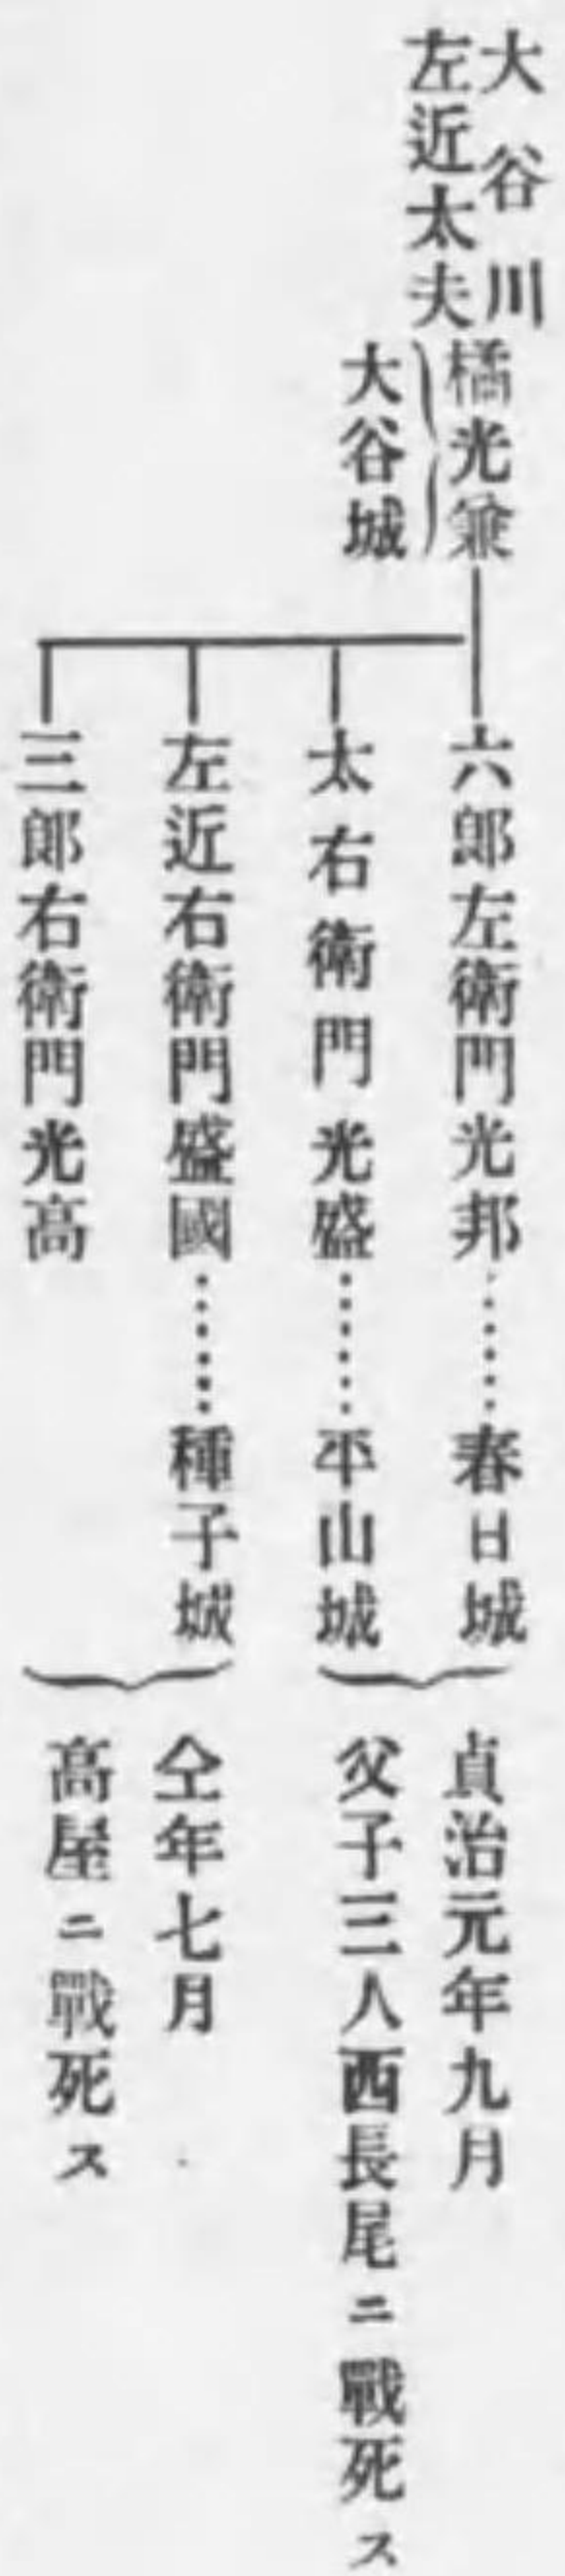 大谷川
左近太夫
橘光兼
大谷城
六郎左衛門光邦……春日城
太右衛門光盛……平山城
左近右衛門盛國……種子城
三郎右衛門光高
貞治元年九月
父子三人西長尾ニ戰死ス
仝年七月
高屋ニ戰死ス